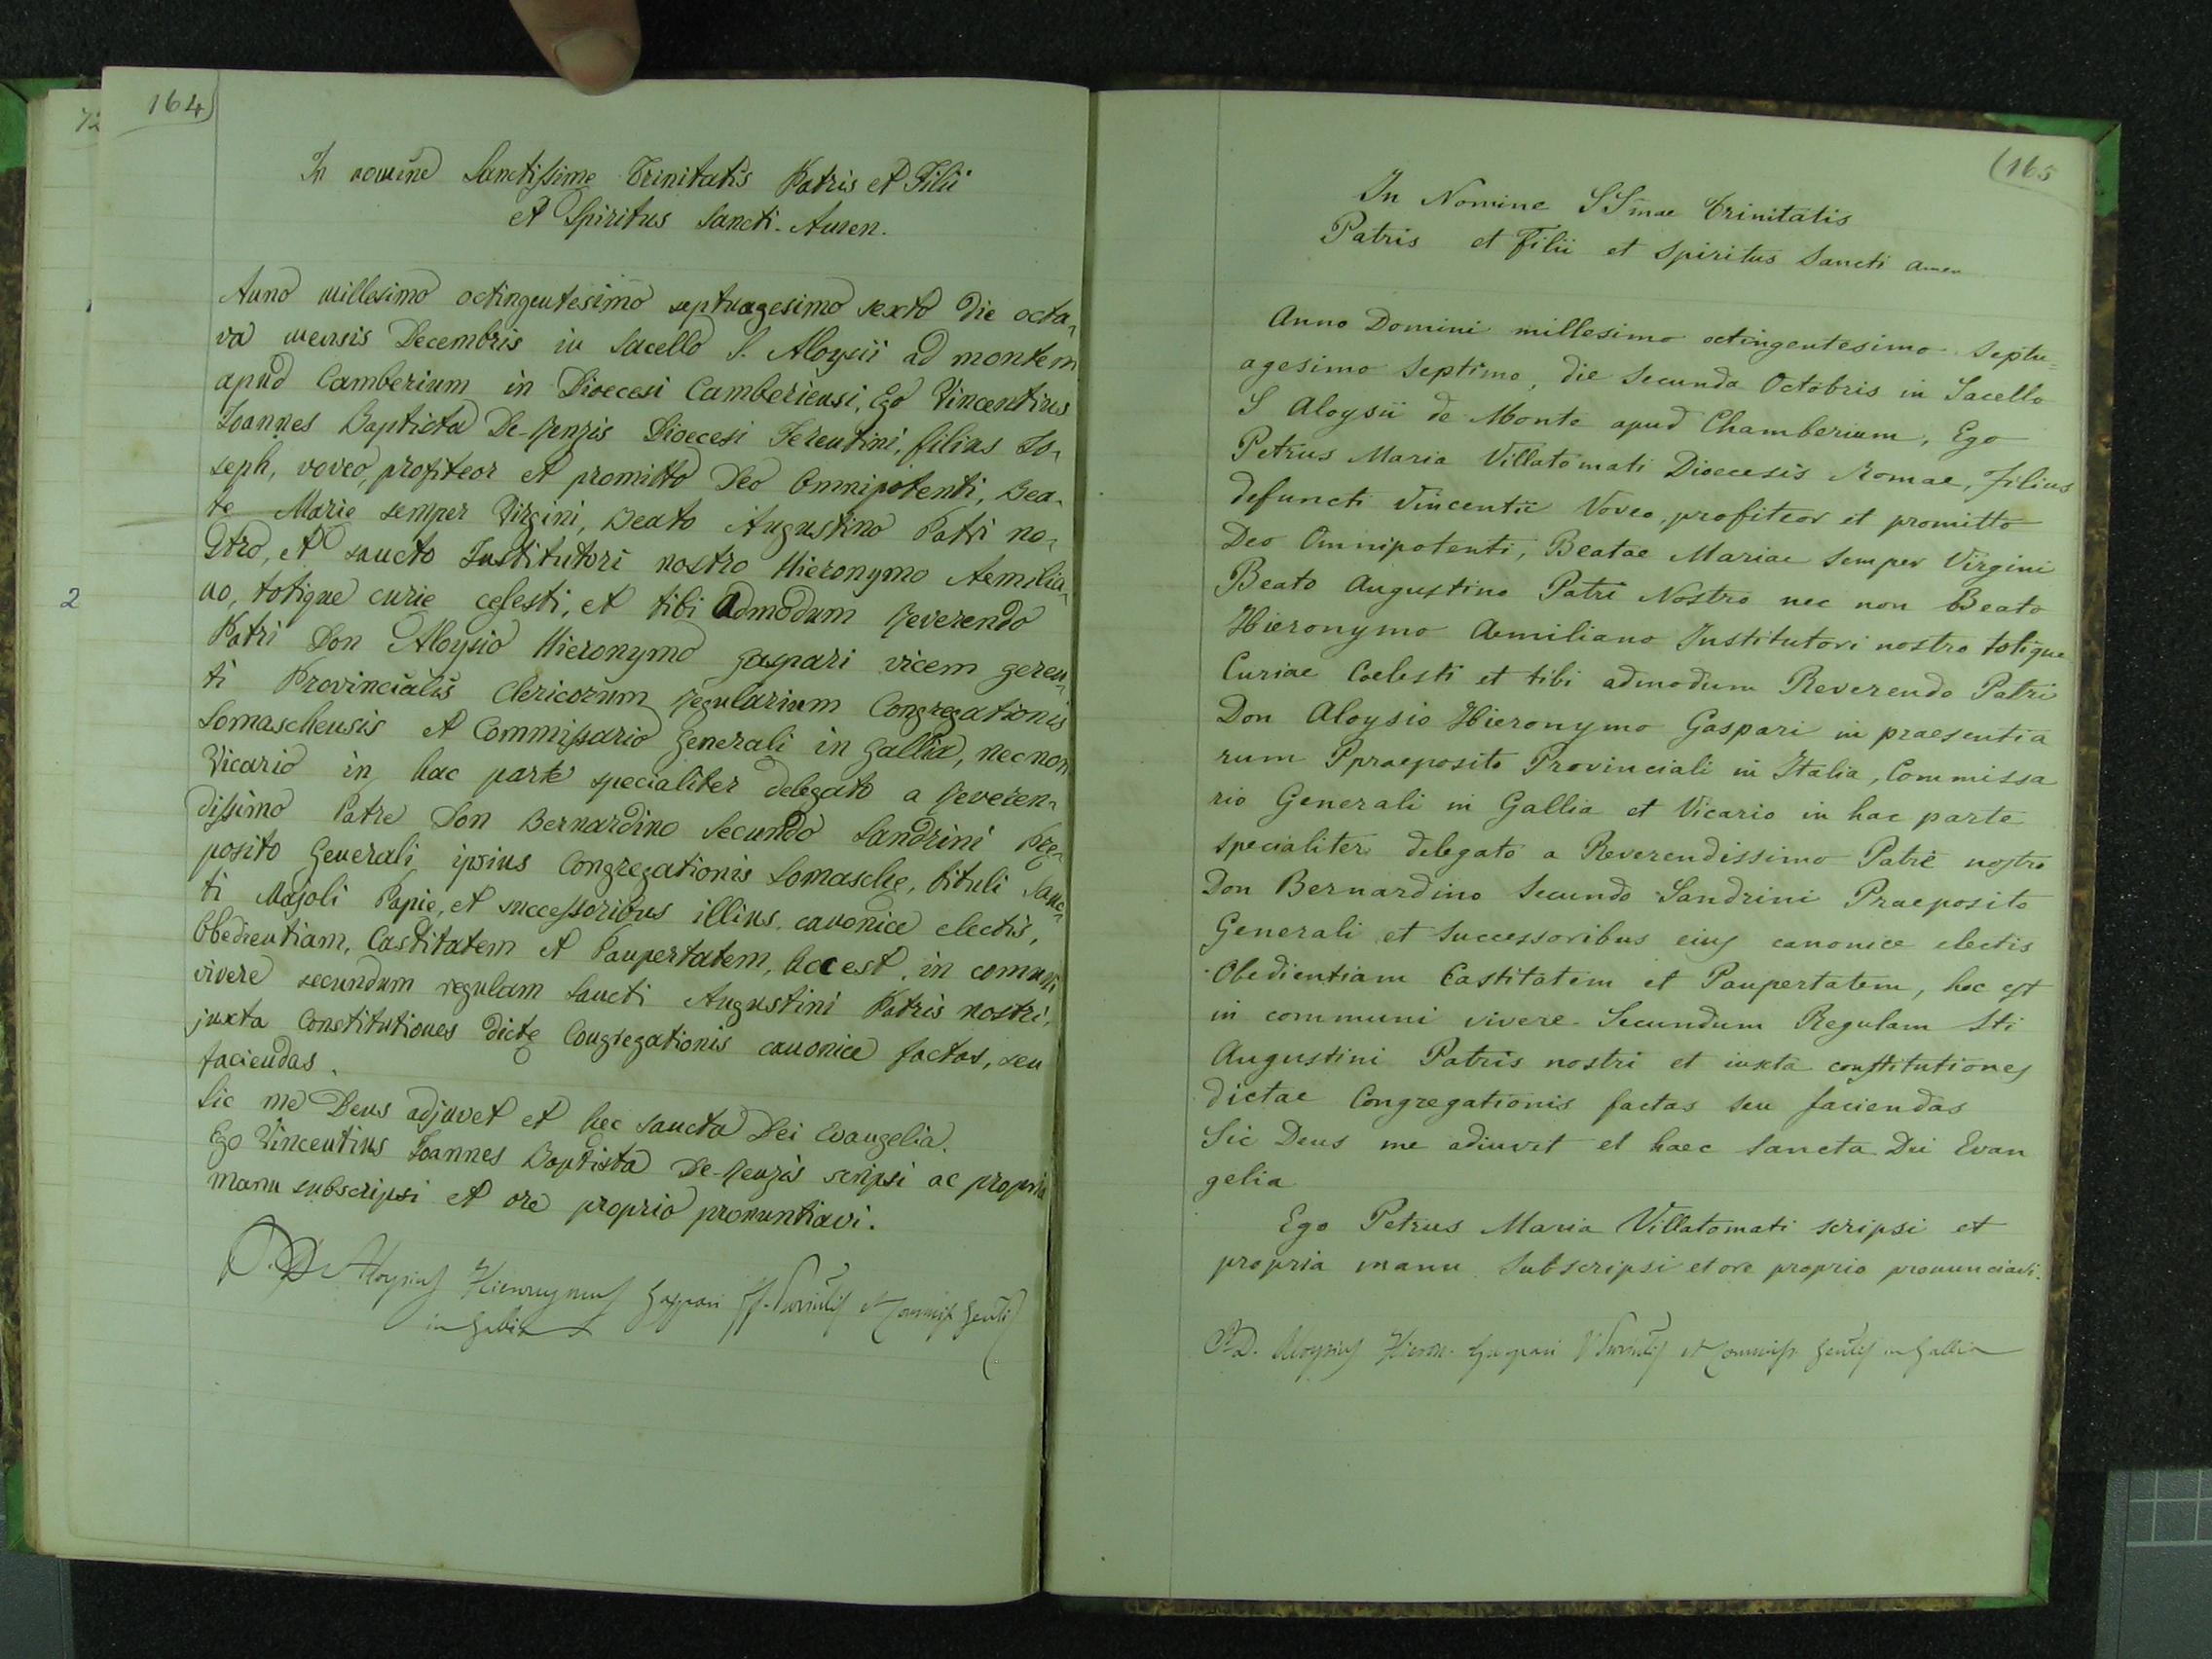 164)
In nomine Sanctissime Trinitatis Patris et Filii
et Spiritus Sancti. Amen.
Anno millesimo octingentesimo septuagesimo sexto die octa-
va mensis Decembris in sacello S. Aloysii ad montem
apud Camberium in Dioecesi Camberiensi, Ego Vincentius
Ioannes Baptista De-Renzis Dioecesi Ferentini, filius Io-
seph, voveo, profiteor et promitto Deo Omnipotenti, Bea-
te Marie semper Virgini, Beato Augustino Patri no-
stro, et sancto Institutori nostro Hieronymo Aemilia-
no, totique curie celesti, et tibi Admodum Reverendo
Patri Don Aloysio Hieronymo Gaspari vicem geren-
ti Provincialis Clericorum Regularium Congregationis
Somaschensis et Commissario Generali in Gallia, necnon
Vicario in hac parte specialiter delegato a Reveren-
dissimo Patre Don Bernardino Secundo Sandrini Pre-
posito Generali ipsius Congregationis Somasche, tituli Sanc-
ti Majoli Papie, et successoribus illius canonice electis,
Obedientiam, Castitatem et Paupertatem, hoc est, in comuni
vivere secundum regulam Sancti Augustini Patris nostri,
juxta Constitutiones dicte Congregationis canonice factas, seu
faciendas.
Sic me Deus adjuvet et hec sancta Dei Evangelia.
Ego Vincentius Ioannes Baptista De-Renzis scripsi ac propria
manu subscripsi et ore proprio pronuntiavi.
D. Aloysius Hieronymus Gaspari ff. Provinlis et Commiss Genlis
in Gallia
2
72
(165
In Nomine SSmae Trinitatis
Patris et Filii et Spiritus Sancti amen
Anno Domini millesimo octingentesimo septu=
agesimo septimo, die secunda Octobris in Sacello
S Aloysii de Monte apud Chamberium, Ego
Petrus Maria Villatomati Dioecesis Romae, filius
defuncti Vincentii Voveo, profiteor et promitto
Deo Omnipotenti, Beatae Mariae semper Virgini
Beato Augustino Patri Nostro nec non Beato
Hieronymo Aemiliano Institutori nostro totique
Curiae Coelesti et tibi admodum Reverendo Patri
Don Aloysio Hieronymo Gaspari in praesentia
rum Ppraeposito Provinciali in Italia, Commissa
rio Generali in Gallia et Vicario in hac parte
specialiter delegato a Reverendissimo Patre nostro
Don Bernardino Secundo Sandrini Praeposito
Generali et Successoribus eius canonice electis
Obedientiam Castitatem et Paupertatem, hoc est
in communi vivere Secundum Regulam Sti
Augustini Patris nostri et iuxta constitutiones
dictae Congregationis factas seu faciendas
Sic Deus me adiuvet et haec Sancta Dei Evan
gelia
Ego Petrus Maria Villatomati scripsi et
propria manu Subscripsi et ore proprio pronunciavi.
P.D. Aloysius Hieron. Gaspari Provinlis et Commiss. Genlis in Gallia